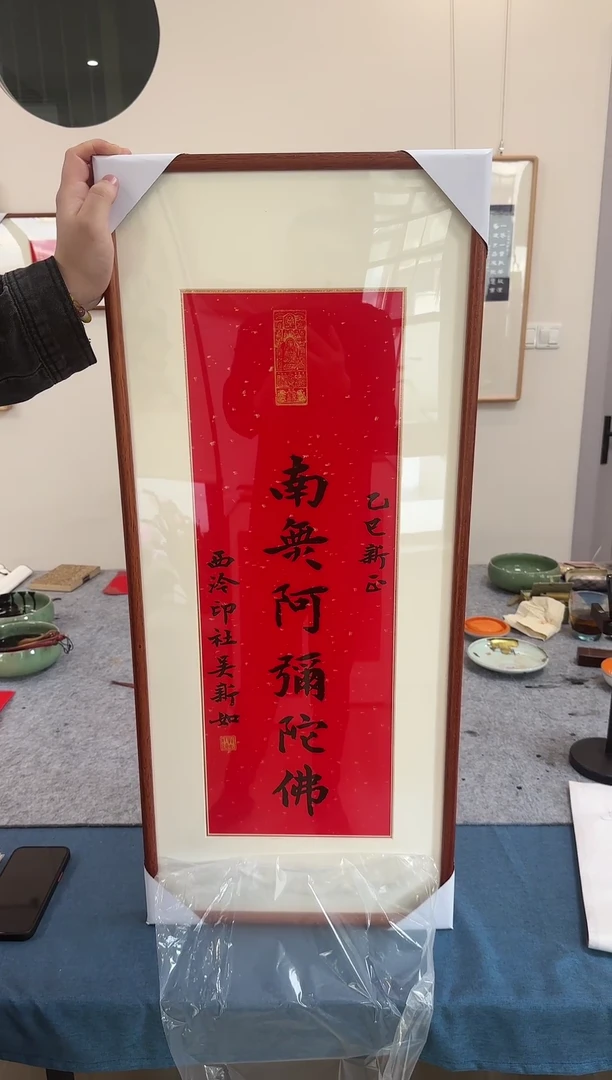 乙巳新正
南無阿彌陀佛
西泠印社吳新如